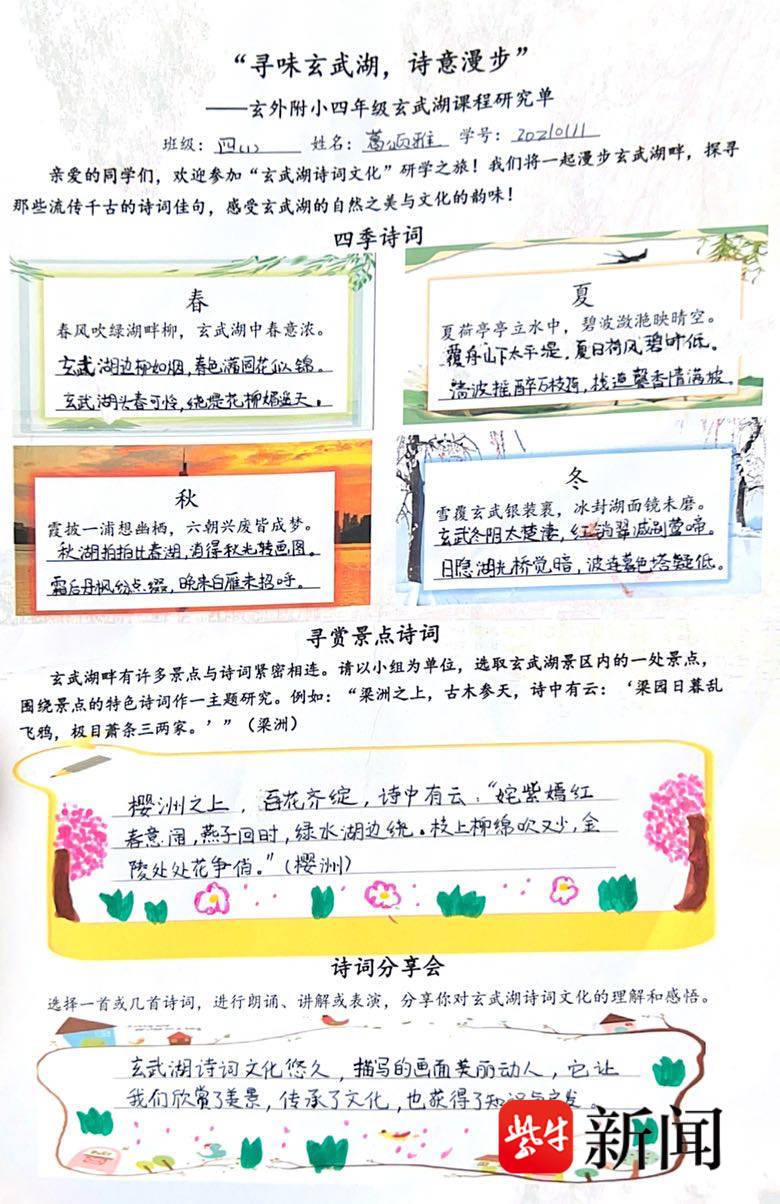 “寻味玄武湖，诗意漫步”
——玄外附小四年级玄武湖课程研究单
班级：四(1) 姓名：葛颂雅 学号：20210111
亲爱的同学们，欢迎参加“玄武湖诗词文化”研学之旅！我们将一起漫步玄武湖畔，探寻
那些流传千古的诗词佳句，感受玄武湖的自然之美与文化的韵味！
四季诗词
春
春风吹绿湖畔柳，玄武湖中春意浓。
玄武湖边柳如烟，春色满园花似锦。
玄武湖头春可怜，绕堤花柳媚遥天。
夏
夏荷亭亭立水中，碧波潋滟映晴空。
覆舟山下太平堤，夏日荷风碧叶低。
清波摇醉石枝，栈道馨香情满坡。
秋
霞披一浦想幽栖，六朝兴废皆成梦。
秋湖拍拍比春湖，消得秋光转画图。
霜后丹枫纷点缀，晚来白雁未招呼。
冬
雪覆玄武银装裹，冰封湖面镜未磨。
玄武冬阴太楚凄，红销翠减别莺啼。
日隐湖光桥觉暗，波连暮色塔疑低。
寻赏景点诗词
玄武湖畔有许多景点与诗词紧密相连。请以小组为单位，选取玄武湖景区内的一处景点，
围绕景点的特色诗词作一主题研究。例如：“梁洲之上，古木参天，诗中有云：‘梁园日暮乱
飞鸦，极目萧条三两家。’”（梁洲）
樱洲之上，百花齐绽，诗中有云：“姹紫嫣红
春意闹，燕子回时，绿水湖边绕。枝上柳绵吹又少，金
陵处处花争俏。”（樱洲）
诗词分享会
选择一首或几首诗词，进行朗诵、讲解或表演，分享你对玄武湖诗词文化的理解和感悟。
玄武湖诗词文化悠久，描写的画面美丽动人，它让
我们欣赏了美景，传承了文化，也获得了知识与
紫牛新闻